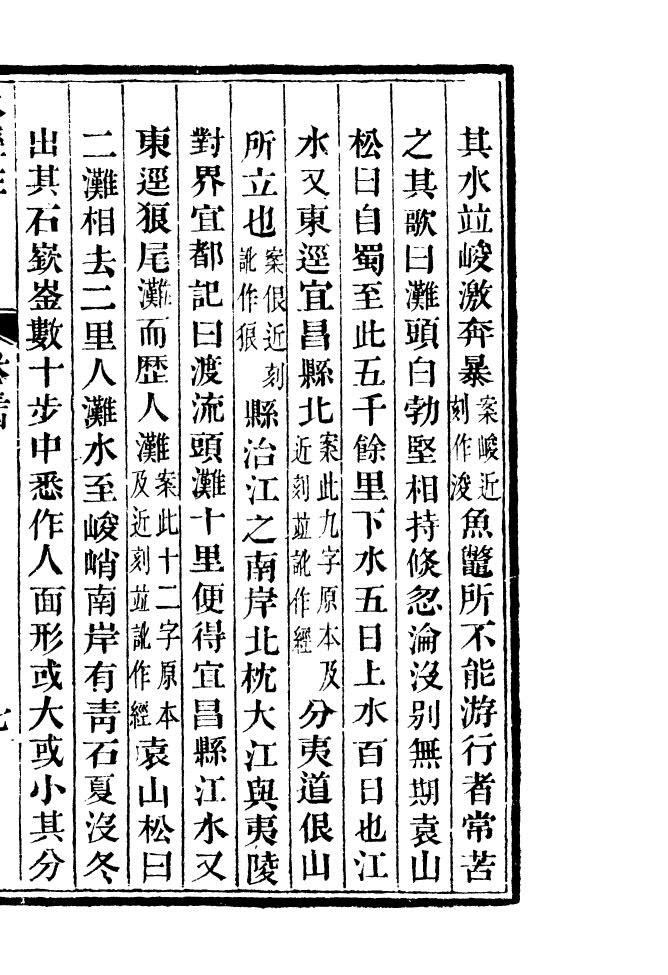 其水竝峻激奔暴案峻近刻作浚魚鼈所不能游行者常苦
之其歌曰灘頭白勃堅相持倐忽淪沒別無期袁山
松曰自蜀至此五千餘里下水五日上水百日也江
水又東逕宜昌縣北案此九字原本及近刻竝訛作經分夷道佷山
所立也案佷近刻訛作狼縣治江之南岸北枕大江與夷陵
對界宜都記曰渡流頭灘十里便得宜昌縣江水又
東逕狼尾灘而歴人灘案此十二字原本及近刻竝訛作經袁山松曰
二灘相去二里人灘水至峻峭南岸有靑石夏沒冬
出其石嶔崟數十步中悉作人面形或大或小其分
七